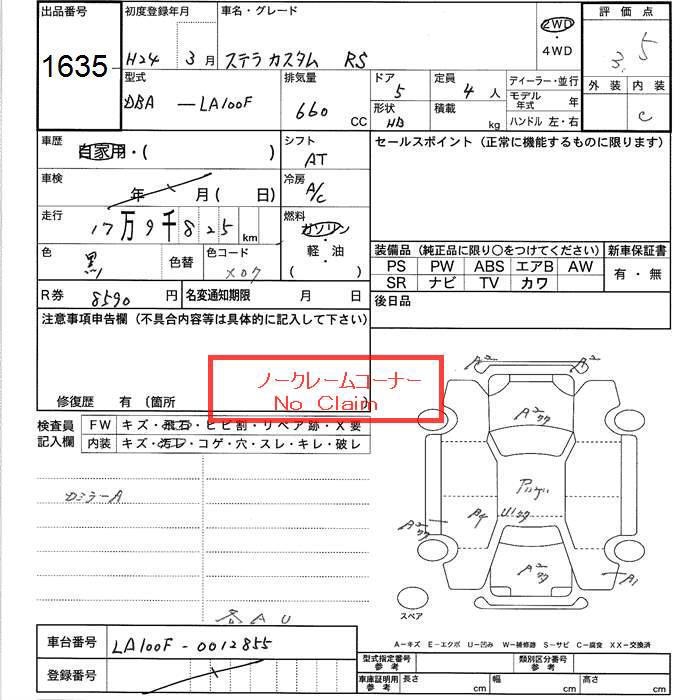 出品番号
1635
初度登録年月
H24 3月
車名・グレード
ステラカスタム RS
2WD
・
4WD
評価点
3.5
外装 内装
C
型式
DBA —LA100F
排気量
660 CC
ドア
5
定員
4 人
形状
HB
積載
kg
ディーラー・並行
モデル年式 年
ハンドル 左・右
車歴
自家用・( )
シフト
AT
セールスポイント（正常に機能するものに限ります）
車検
年 月( 日)
冷房
A/C
走行
17万9千825 km
燃料
ガソリン
・
軽油
( )
色
黒
色替
色コード
X07
装備品（純正品に限り○をつけてください） 新車保証書
PS PW ABS エアB AW
SR ナビ TV カワ
有・無
R券 8590 円
名変通知期限 月 日
後日品
注意事項申告欄（不具合内容等は具体的に記入して下さい）
ノークレームコーナー
No Claim
修復歴 有 〔箇所
検査員記入欄
FW キズ・飛石・ヒビ割・リペア跡・X要
内装 キズ・汚レ・コゲ・穴・スレ・キレ・破レ
A2 A2
A2
A4
A2
A1
スペア
各AU
A－キズ E－エクボ U－凹み W－補修跡 S－サビ C－腐食 XX－交換済
車台番号 LA100F-0012855
登録番号
型式指定番号 参考
類別区分番号 参考
車庫証明用 参考
長さ cm 幅 cm 高さ cm